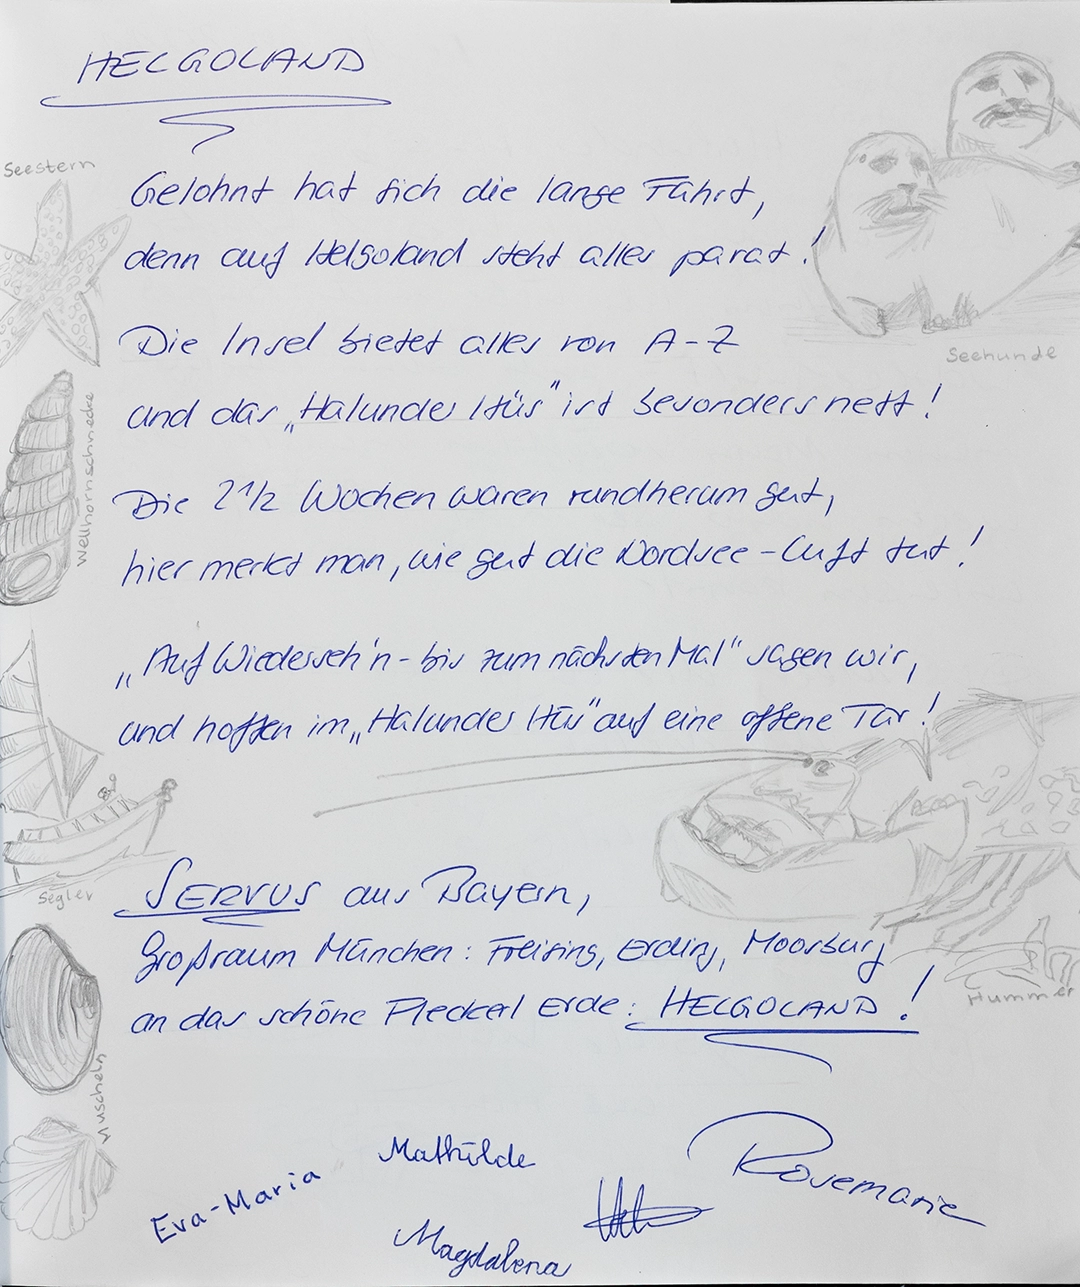 HELGOLAND
Seestern
Gelohnt hat sich die lange Fahrt,
denn auf Helgoland steht alles parat!
Seehunde
Die Insel bietet alles von A-Z
und das „Halunder Hüs" ist besonders nett!
Wellhornschnecke
Die 2 1/2 Wochen waren rundherum gut,
hier merkt man, wie gut die Nordsee-Luft tut!
„Auf Wiederseh'n - bis zum nächsten Mal" sagen wir,
und hoffen im „Halunder Hüs" auf eine offene Tür!
Segler
SERVUS aus Bayern,
Großraum München: Freising, Erding, Moosburg
an das schöne Fleckerl Erde: HELGOLAND!
Hummer
Muscheln
Eva-Maria
Mathilde
Magdalena
Rosemarie